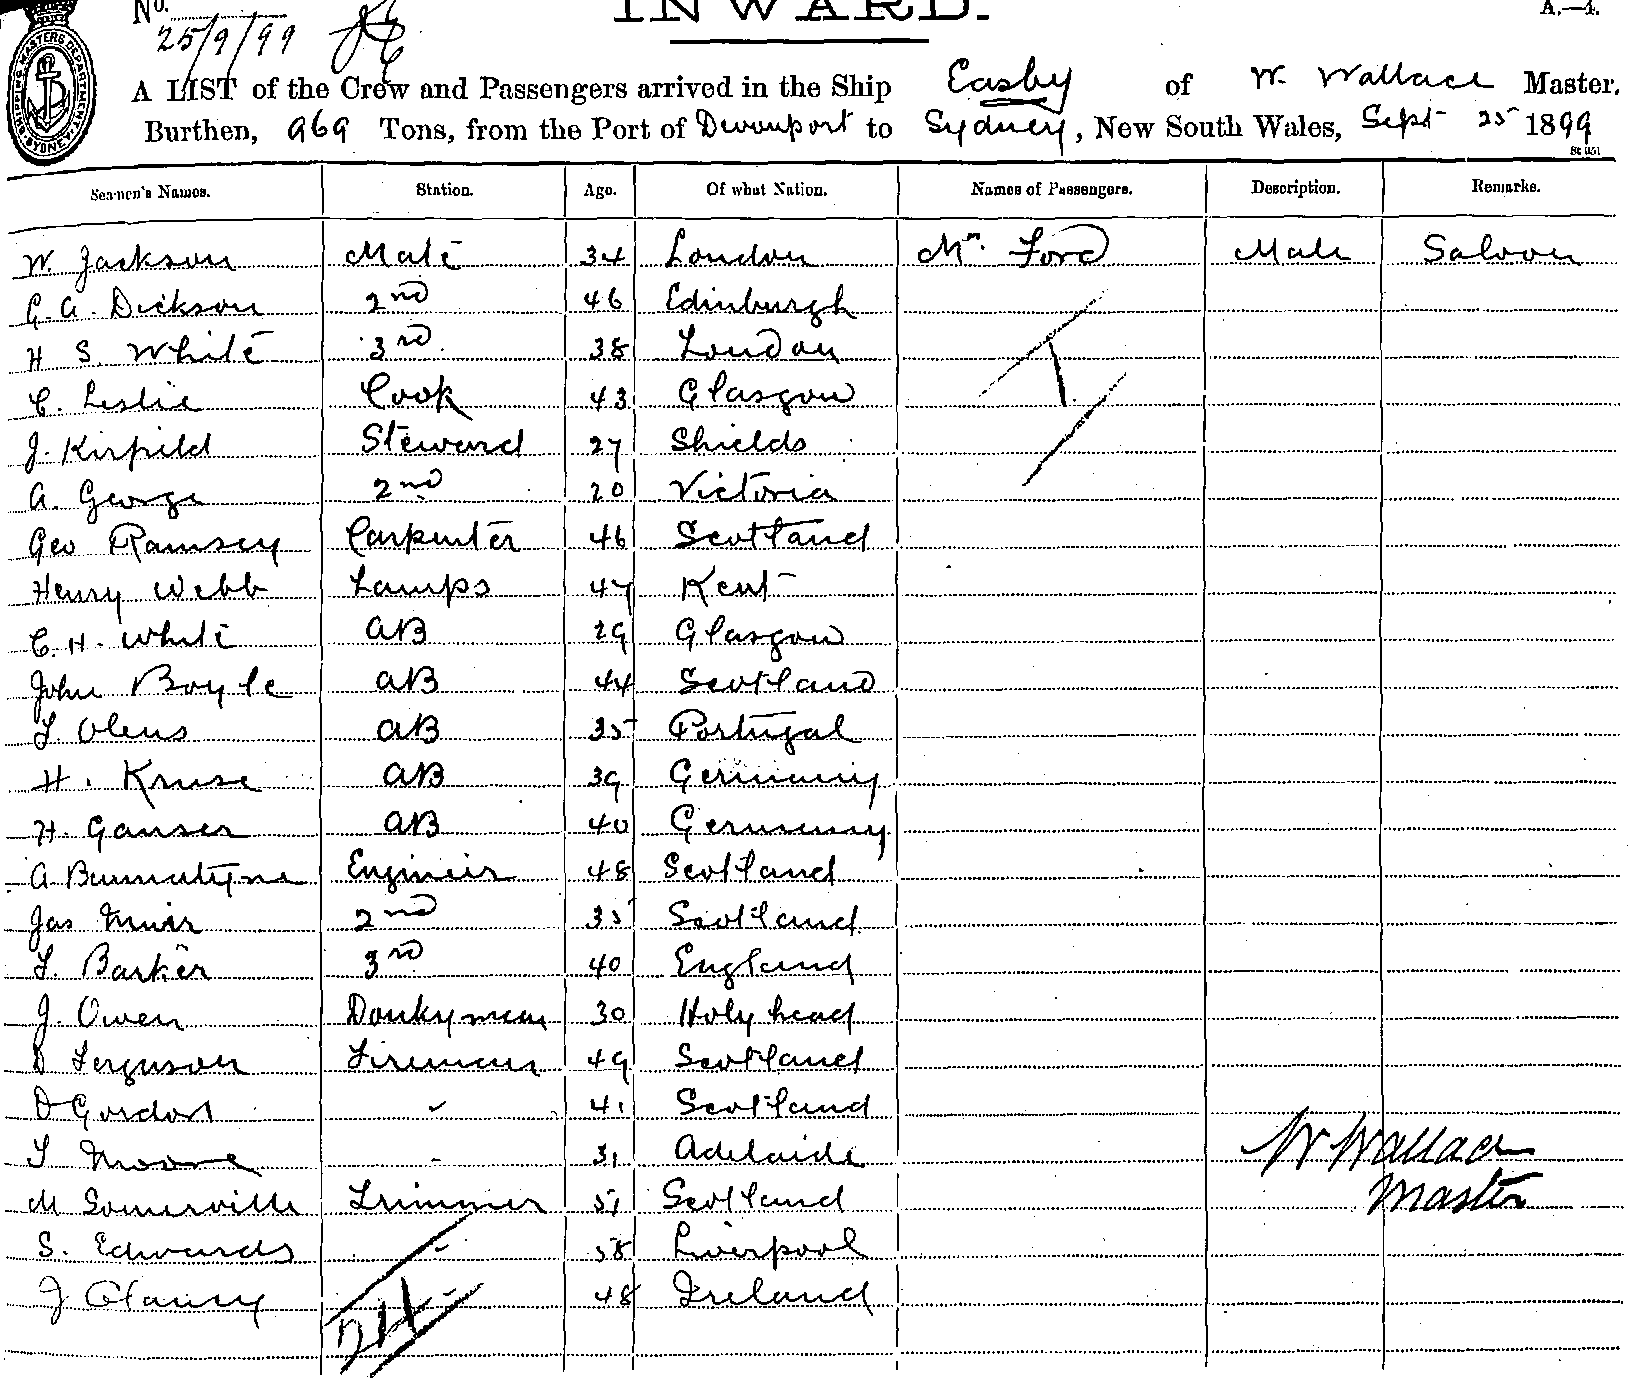 No.
INWARD.
A.—4.
25/9/99
SHIPPING MASTERS DEPARTMENT SYDNEY
A LIST of the Crew and Passengers arrived in the Ship Easby of W. Wallace Master,
Burthen, 969 Tons, from the Port of Devonport to Sydney, New South Wales, Sept 25 1899
Seamen's Names. Station. Age. Of what Nation. Names of Passengers. Description. Remarks.
W. Jackson Mate 34 London Mr. Ford Male Saloon
G. A. Dickson 2nd 46 Edinburgh
H S. White 3rd 38 London
C. Leslie Cook 43 Glasgow
J. Kirfield Steward 27 Shields
A. George 2nd 20 Victoria
Geo Ramsey Carpenter 46 Scotland
Henry Webb Lamps 47 Kent
C. H. White AB 29 Glasgow
John Boyle AB 44 Scotland
L Olens AB 35 Portugal
H. Kruse AB 39 Germany
H. Ganser AB 40 Germany
A Bannatyne Engineer 48 Scotland
Jas Muir 2nd 35 Scotland
T. Barker 3rd 40 England
J. Owen Donkyman 30 Holyhead
D Ferguson Fireman 49 Scotland
D Gordon 41 Scotland
T Moore - 31 Adelaide
W Wallace
M Somerville Trimmer 51 Scotland
Master
S. Edwards - 58 Liverpool
J Clancy - 48 Ireland
24